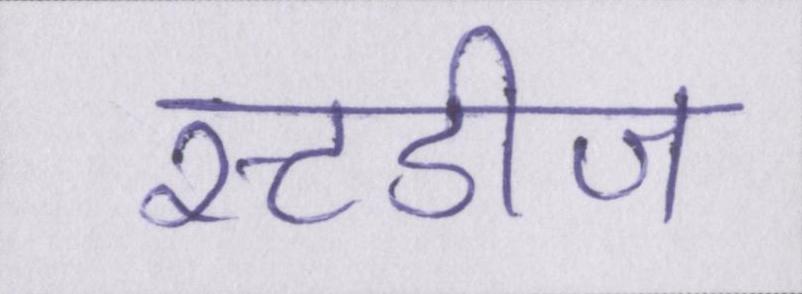 स्टडीज